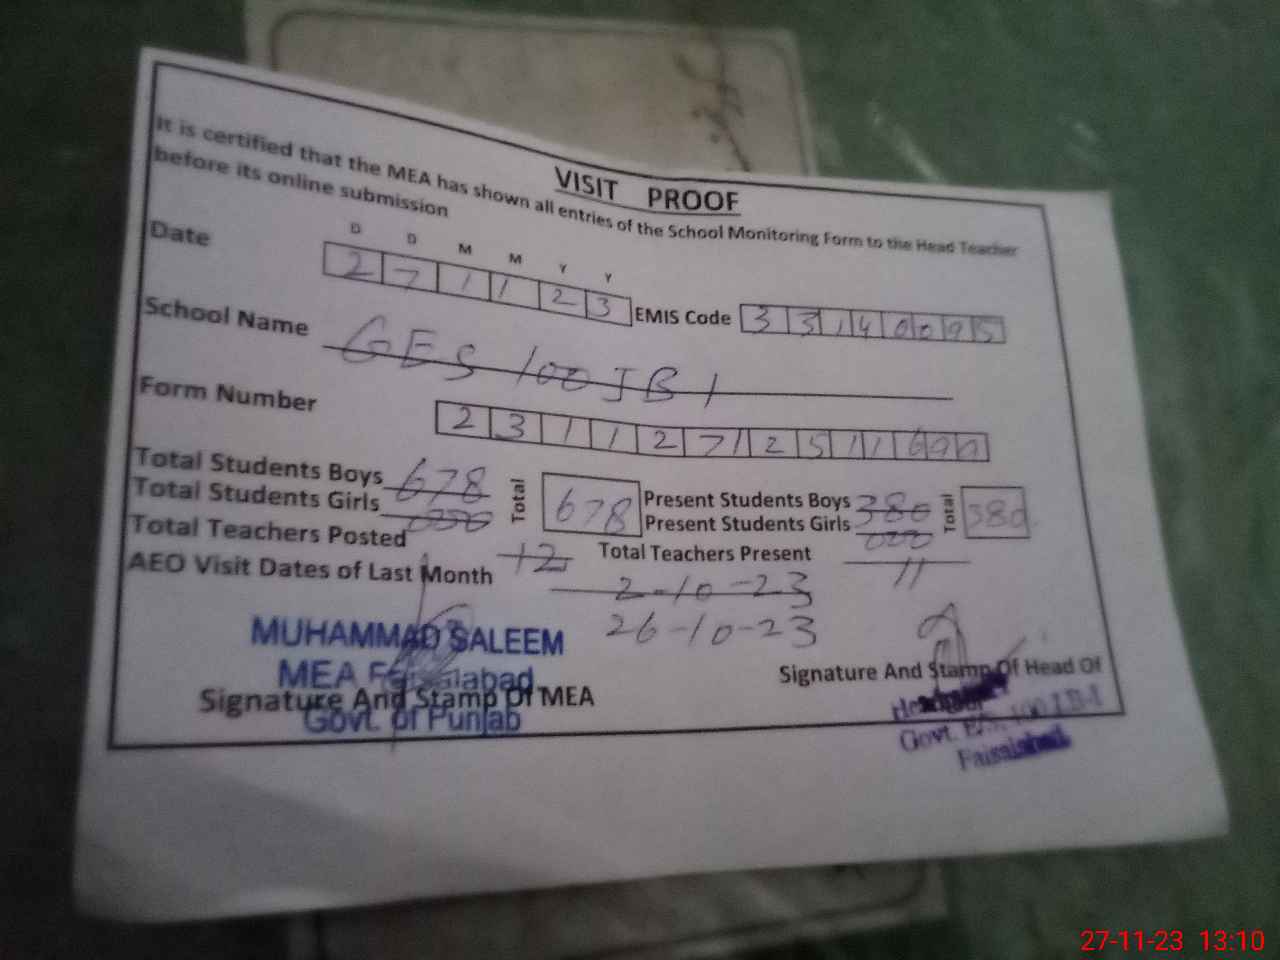 VISIT PROOF
It is certified that the MEA has shown all entries of the School Monitoring Form to the Head Teacher
before its online submission
D D M M Y Y
Date 2 7 1 1 2 3 EMIS Code 3 3 1 4 0 0 9 5
School Name GES 100 JB 1
Form Number 2 3 1 1 2 7 1 2 5 1 1
Total Students Boys 678 Total 678 Present Students Boys 380 Total 380
Total Students Girls 000 Present Students Girls 000
Total Teachers Posted 12 Total Teachers Present 11
AEO Visit Dates of Last Month 2-10-23
26-10-23
MUHAMMAD SALEEM
MEA Faisalabad
Govt. of Punjab
Signature And Stamp Of MEA
Signature And Stamp Of Head Of
Govt. 100 J.B-I
Faisalabad
27-11-23 13:10